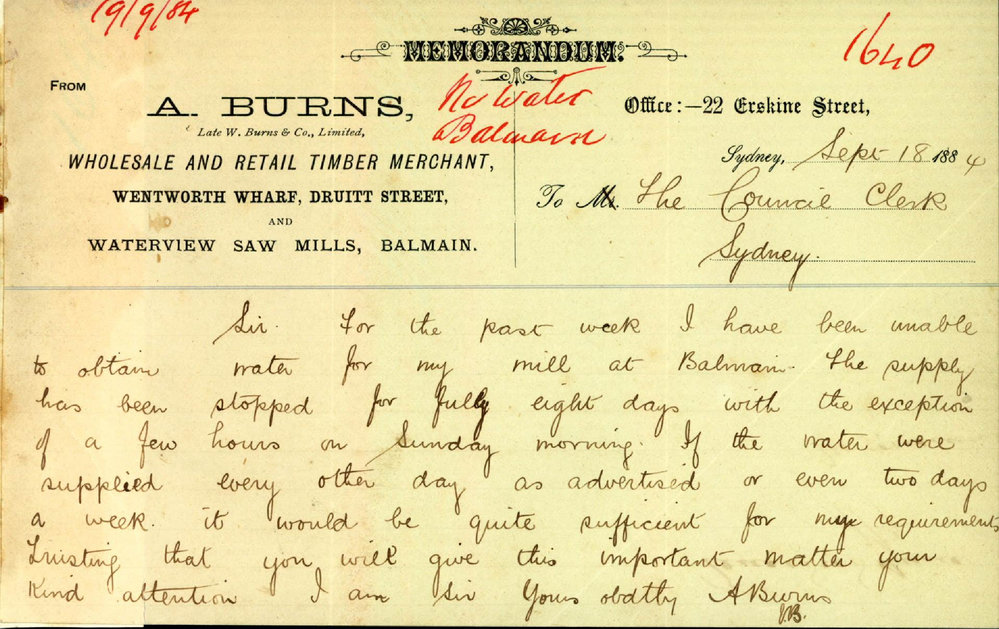 19/9/84
MEMORANDUM.
1640
FROM
A. BURNS,
Late W. Burns & Co., Limited,
WHOLESALE AND RETAIL TIMBER MERCHANT,
WENTWORTH WHARF, DRUITT STREET,
AND
WATERVIEW SAW MILLS, BALMAIN.
No Water
Balmain
Office:—22 Erskine Street,
Sydney, Sept 18 1884
To Mr. The Council Clerk
Sydney.
Sir. For the past week I have been unable
to obtain water for my mill at Balmain. The supply
has been stopped for fully eight days with the exception
of a few hours on Sunday morning. If the water were
supplied every other day as advertised or even two days
a week it would be quite sufficient for my requirements
Trusting that you will give this important matter your
kind attention I am Sir Yours obdtly ABurns
JB.